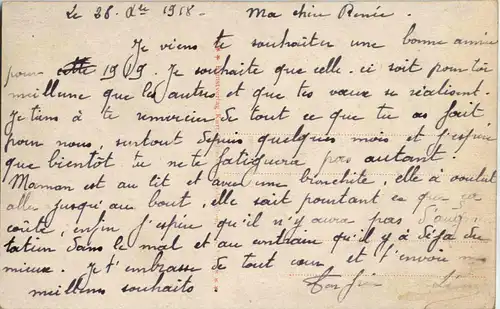 Le 28. Dec 1918 - Ma chère Renée.
Je viens te souhaiter une bonne année
pour cette 1919. Je souhaite que celle-ci soit pour toi
meilleure que les autres et que tes vœux se réalisent.
Je tiens à te remercier de tout ce que tu as fait
pour nous, surtout depuis quelques mois et j'espère
que bientôt tu ne te fatiguera pas autant.
Maman est au lit et avec une bronchite, elle à voulut
aller jusqu'au bout, elle sait pourtant ce que ça
coûte, enfin j'espère qu'il n'y aura pas d'augmen
tation dans le mal et au contraire qu'il y à déja du
mieux. Je t'embrasse de tout cœur et t'envoie m
meilleurs souhaits Ton